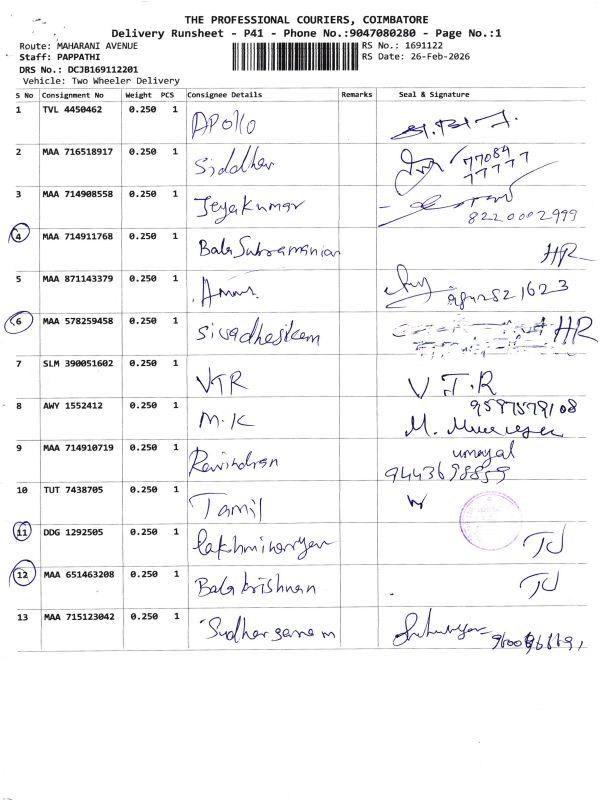 THE PROFESSIONAL COURIERS, COIMBATORE
Delivery Runsheet - P41 - Phone No.:9047080280 - Page No.:1
Route: MAHARANI AVENUE RS No.: 1691122
Staff: PAPPATHI RS Date: 26-Feb-2026
DRS No.: DCJB169112201
Vehicle: Two Wheeler Delivery
S No Consignment No Weight PCS Consignee Details Remarks Seal & Signature
1 TVL 4450462 0.250 1 Apollo
2 MAA 716518917 0.250 1 Siddhar 77084
77777
3 MAA 714908558 0.250 1 Jeyakumar
8220002999
4 MAA 714911768 0.250 1 Bala Subramanian HR
5 MAA 871143379 0.250 1
6 MAA 578259458 0.250 1 Sivadheskem HR
7 SLM 390051602 0.250 1 VTR V T.R
8 AWY 1552412 0.250 1 M.K
M.
9 MAA 714910719 0.250 1 Ravindran umayal
10 TUT 7438705 0.250 1 Tamil
11 DDG 1292505 0.250 1 TJ
12 MAA 651463208 0.250 1 Balakrishnan TJ
13 MAA 715123042 0.250 1